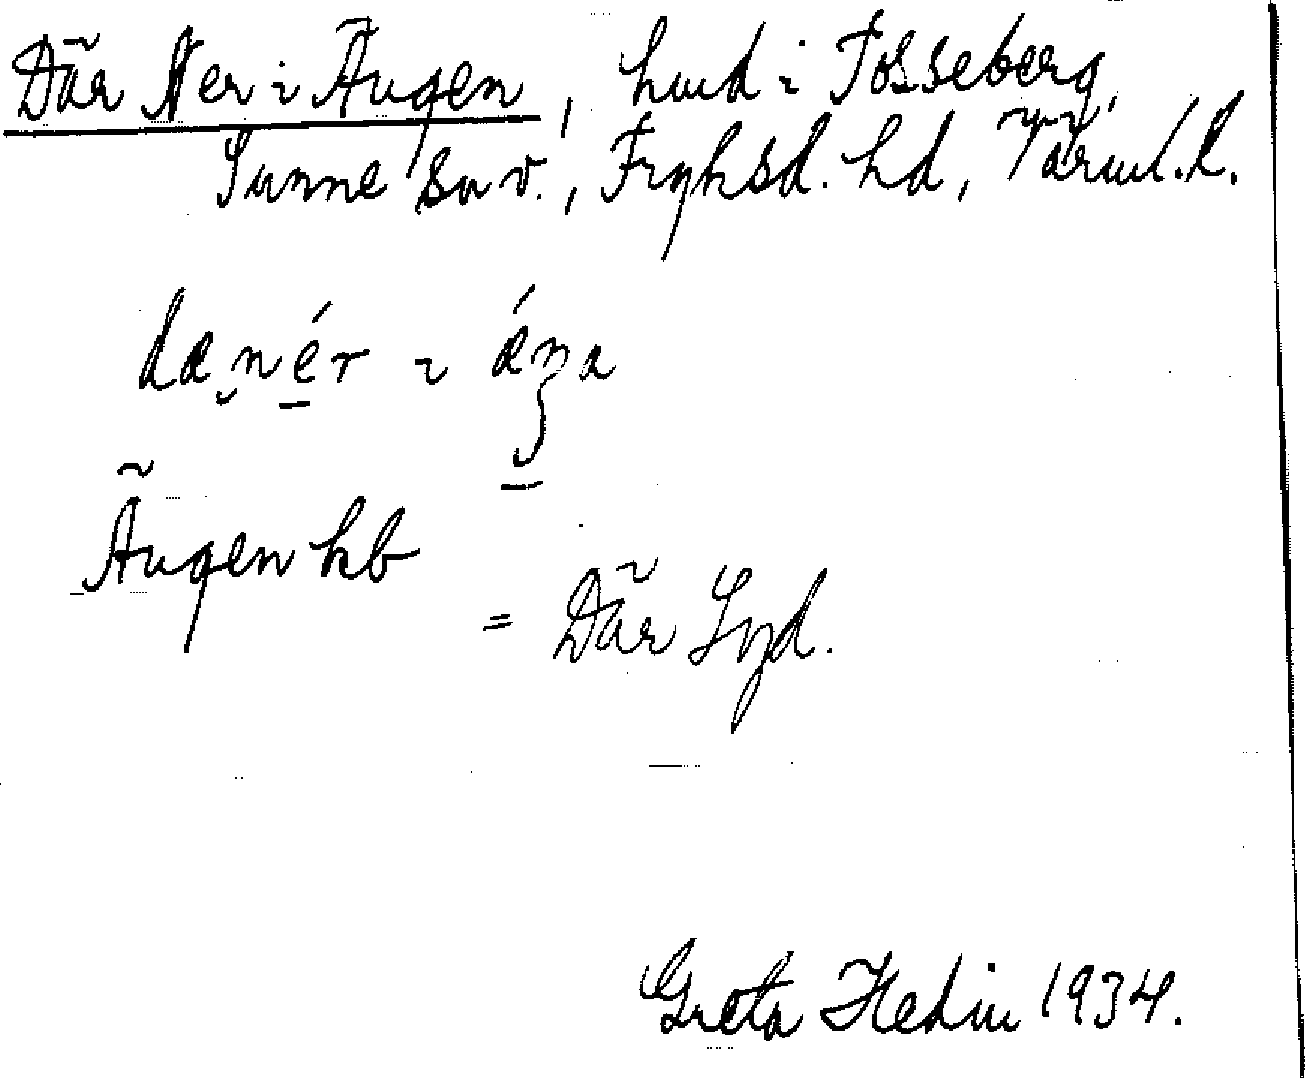 Där Ner i Ängen, hmd i Fosseberg,
Sunne sn v., Fryksd. hd, Värml. l.
dæ nér i æŋa
Ängen kb
= Där Syd.
Greta Hedin 1934.